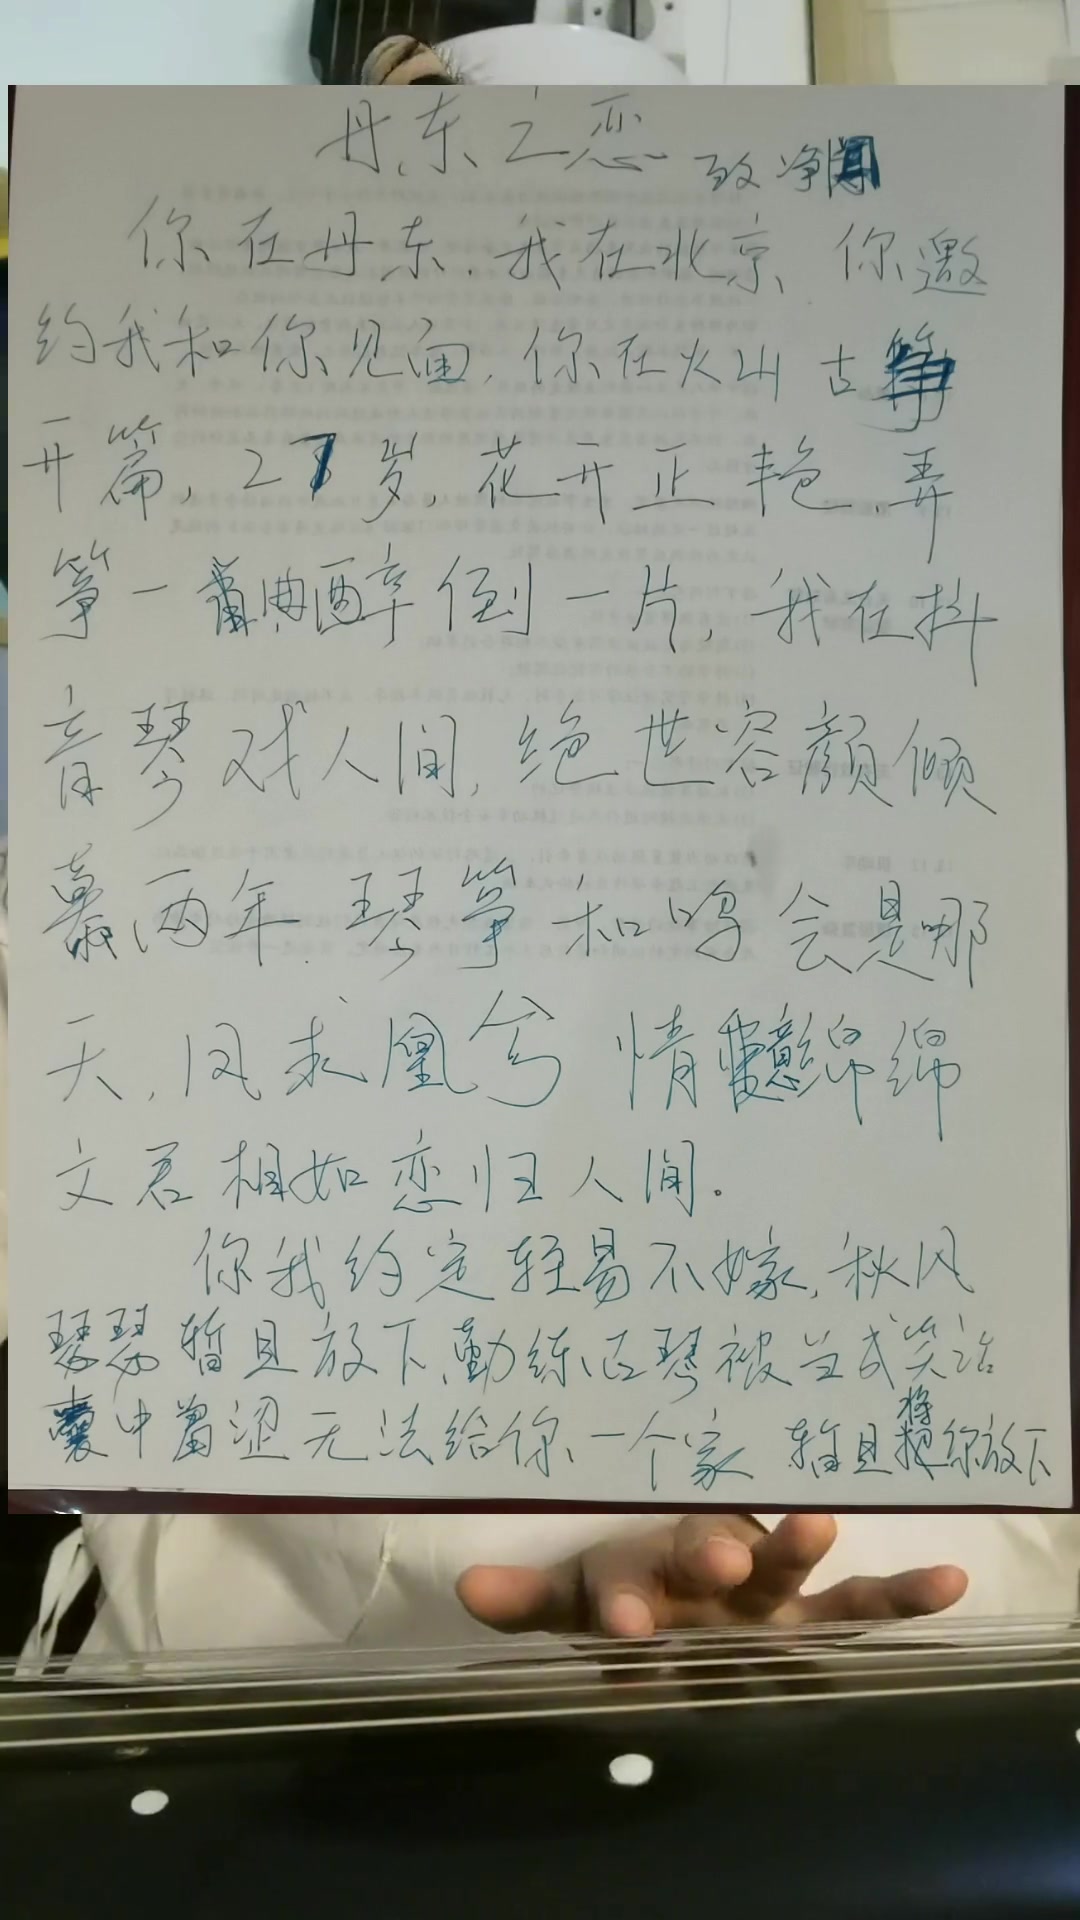 丹东之恋 致净
你在丹东,我在北京 你邀
约我和你见面,你在火山古筝
开篇,27岁,花开正艳,弄
筝一曲醉倒一片,我在抖
音琴戏人间,绝世容颜倾
慕两年,琴筝和鸣会是哪
天,凤求凰兮 情意绵绵
文君相如恋归人间。
你我约定轻易不嫁,秋风
瑟瑟暂且放下,勤练古琴被当成笑话
囊中羞涩无法给你一个家 暂且将你放下